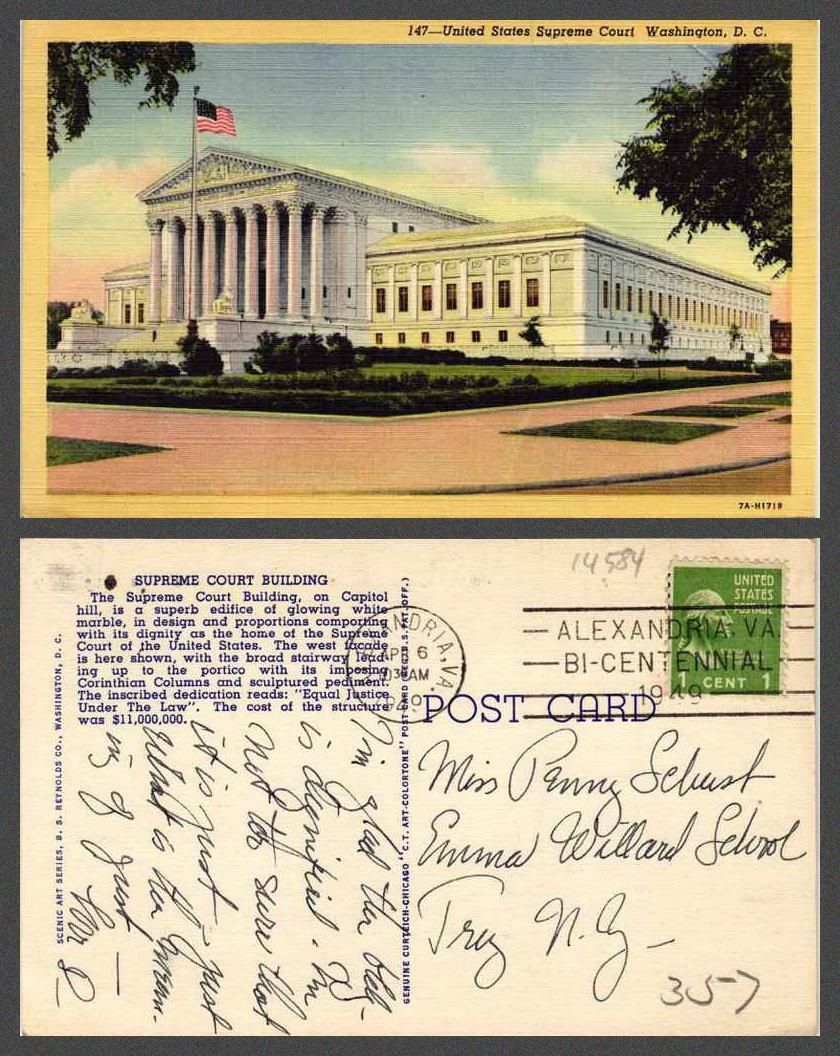 147—United States Supreme Court Washington, D. C.
7A-H1719
14584
SUPREME COURT BUILDING
The Supreme Court Building, on Capitol
hill, is a superb edifice of glowing white
marble, in design and proportions comporting
with its dignity as the home of the Supreme
Court of the United States. The west facade
is here shown, with the broad stairway lead-
ing up to the portico with its imposing
Corinthian Columns and sculptured pediment.
The inscribed dedication reads: "Equal Justice
Under The Law". The cost of the structure
was $11,000,000.
SCENIC ART SERIES, B. S. REYNOLDS CO., WASHINGTON, D. C.
GENUINE CURTEICH-CHICAGO "C.T. ART-COLORTONE" POST CARD (REG. U.S. PAT. OFF.)
ANDRIA, VA.
APR 6
30 AM
UNITED
STATES
POSTAGE
1 CENT 1
ALEXANDRIA, VA.
BI-CENTENNIAL
1949
POST CARD
I'm glad the bldg.
is dignified. I'm
not so sure that
it is just — just
what is the mean-
ing of just —
Love D
Miss Penny Schust
Emma Willard School
Troy N.Y—
357